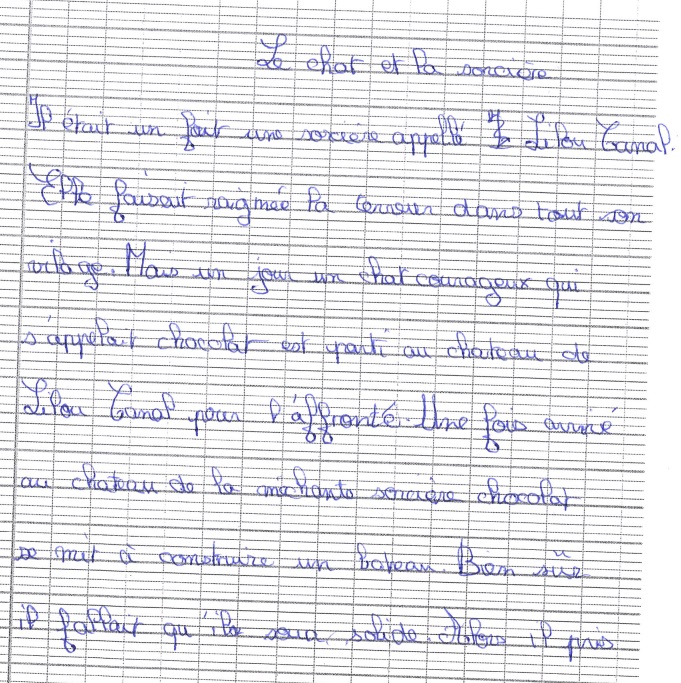 Le chat et la sorcière
Il était un fait une sorciere appellé Lilou Canal.
Elle faisait raigmée la terreur dans tout son
vilage. Mais un jour un chat courageux qui
s'appelait chocolat est parti au chateau de
Lilou Canal pour l'affronté. Une fois arrivé
au chateau de la méchante sorcière chocolat
se mit à construire un bateau. Bien sûr
il fallait qu'il solide. Alors il pris